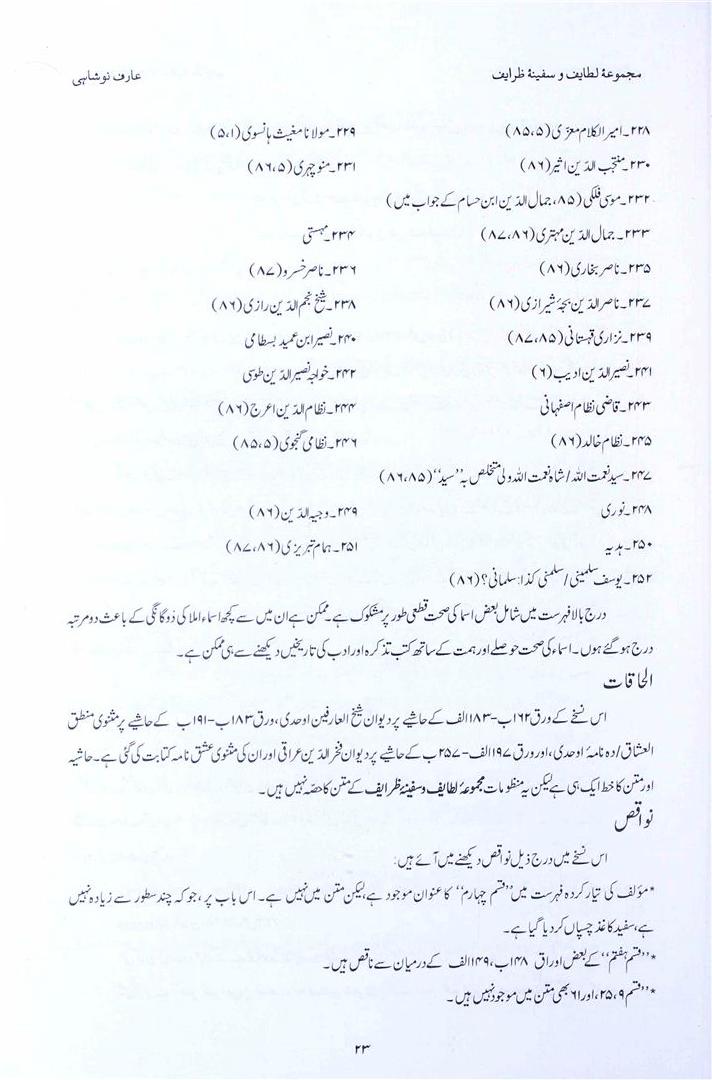 مجموعۂ لطایف و سفینۂ ظرایف عارف نوشاہی
۲۲۸۔امیر الکلام معزی (۸۵،۵) ۲۲۹۔مولانا مغیث ہانسوی (۵،۱)
۲۳۰۔منتجب الدّین اثیر (۸۶) ۲۳۱۔منوچہری (۸۶،۵)
۲۳۲۔موسیٰ فلکی (۸۵، جمال الدّین ابن حسام کے جواب میں)
۲۳۳۔جمال الدّین مہتری (۸۷،۸۶) ۲۳۴۔مہستی
۲۳۵۔ناصر بخاری (۸۶) ۲۳۶۔ناصر خسرو (۸۷)
۲۳۷۔ناصر الدّین بجۂ شیرازی (۸۶) ۲۳۸۔شیخ نجم الدّین رازی (۸۶)
۲۳۹۔نزاری قہستانی (۸۷،۸۵) ۲۴۰۔نصیر ابن عمید بسطامی
۲۴۱۔نصیر الدّین ادیب (۶) ۲۴۲۔خواجہ نصیر الدّین طوسی
۲۴۳۔قاضی نظام اصفہانی ۲۴۴۔نظام الدّین اعرج (۸۶)
۲۴۵۔نظام خالد (۸۶) ۲۴۶۔نظامی گنجوی (۸۵،۵)
۲۴۷۔سید نعمت اللہ/شاہ نعمت اللہ ولی متخلص بہ ”سید“ (۸۶،۸۵)
۲۴۸۔نوری ۲۴۹۔وجیہ الدّین (۸۶)
۲۵۰۔ہدیہ ۲۵۱۔ہمام تبریزی (۸۷،۸۶)
۲۵۲۔یوسف سلمینی/سلمنی کذا: سلمانی؟ (۸۶)
درج بالا فہرست میں شامل بعض اسما کی صحت قطعی طور پر مشکوک ہے۔ ممکن ہے ان میں سے کچھ اسماء املا کی دوگانگی کے باعث دو مرتبہ
درج ہو گئے ہوں۔ اسماء کی صحت حوصلے اور ہمت کے ساتھ کتب تذکرہ اور ادب کی تاریخیں دیکھنے سے ہی ممکن ہے۔
الحاقات
اس نسخے کے ورق ۱۶۲ب-۱۸۳الف کے حاشیے پر دیوان شیخ العارفین اوحدی، ورق ۱۸۳ب-۱۹۱ب کے حاشیے پر مثنوی منطق
العشاق/دہ نامۂ اوحدی، اور ورق ۱۹۷الف-۲۵۷ب کے حاشیے پر دیوان فخر الدّین عراقی اور ان کی مثنوی عشق نامہ کتابت کی گئی ہے۔ حاشیہ
اور متن کا خط ایک ہی ہے لیکن یہ منظومات مجموعۂ لطایف و سفینۂ ظرایف کے متن کا حصّہ نہیں ہیں۔
نواقص
اس نسخے میں درج ذیل نواقص دیکھنے میں آئے ہیں:
*مؤلف کی تیار کردہ فہرست میں ”قسم چہارم“ کا عنوان موجود ہے، لیکن متن میں نہیں ہے۔ اس باب پر، جو کہ چند سطور سے زیادہ نہیں
ہے، سفید کاغذ چسپاں کر دیا گیا ہے۔
*”قسم ہفتم“ کے بعض اوراق ۱۴۸ب، ۱۴۹الف کے درمیان سے ناقص ہیں۔
*”قسم ۹، ۲۵، اور ۶۱ بھی متن میں موجود نہیں ہیں۔
۲۳